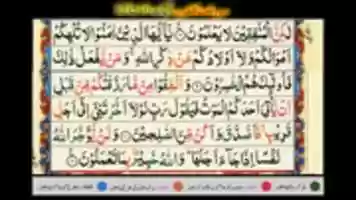 لٰكِنَّ الْمُنٰفِقِيْنَ لَا يَعْلَمُوْنَ ۝ يٰۤاَيُّهَا الَّذِيْنَ اٰمَنُوْا لَا تُلْهِكُمْ
اَمْوَالُكُمْ وَلَاۤ اَوْلَادُكُمْ عَنْ ذِكْرِ اللّٰهِ ۚ وَمَنْ يَّفْعَلْ ذٰلِكَ
فَاُولٰٓئِكَ هُمُ الْخٰسِرُوْنَ ۝ وَاَنْفِقُوْا مِنْ مَّا رَزَقْنٰكُمْ مِّنْ قَبْلِ
اَنْ يَّاْتِيَ اَحَدَكُمُ الْمَوْتُ فَيَقُوْلَ رَبِّ لَوْلَاۤ اَخَّرْتَنِيْۤ اِلٰۤى اَجَلٍ
قَرِيْبٍ ۙ فَاَصَّدَّقَ وَاَكُنْ مِّنَ الصّٰلِحِيْنَ ۝ وَلَنْ يُّؤَخِّرَ اللّٰهُ
نَفْسًا اِذَا جَآءَ اَجَلُهَا ؕ وَاللّٰهُ خَبِيْرٌۢ بِمَا تَعْمَلُوْنَ ۝